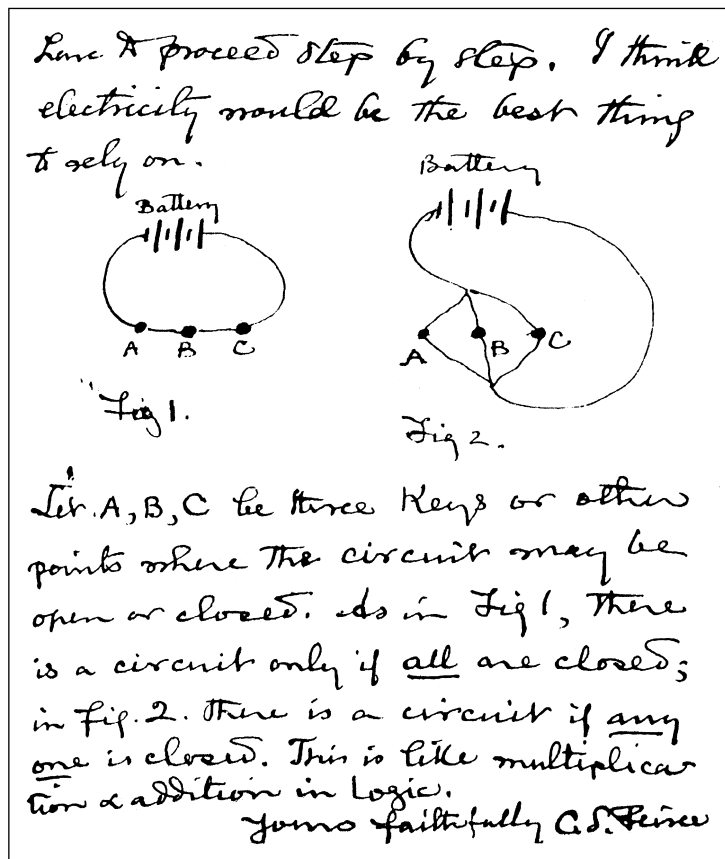 have to proceed step by step. I think
electricity would be the best thing
to rely on.
Battery
Battery
A B C
A B C
Fig 1.
Fig 2.
Let A, B, C be three keys or other
points where the circuit may be
open or closed. As in Fig 1, there
is a circuit only if all are closed;
in Fig. 2. there is a circuit if any
one is closed. This is like multiplica
tion & addition in Logic.
Yours faithfully C.S. Peirce